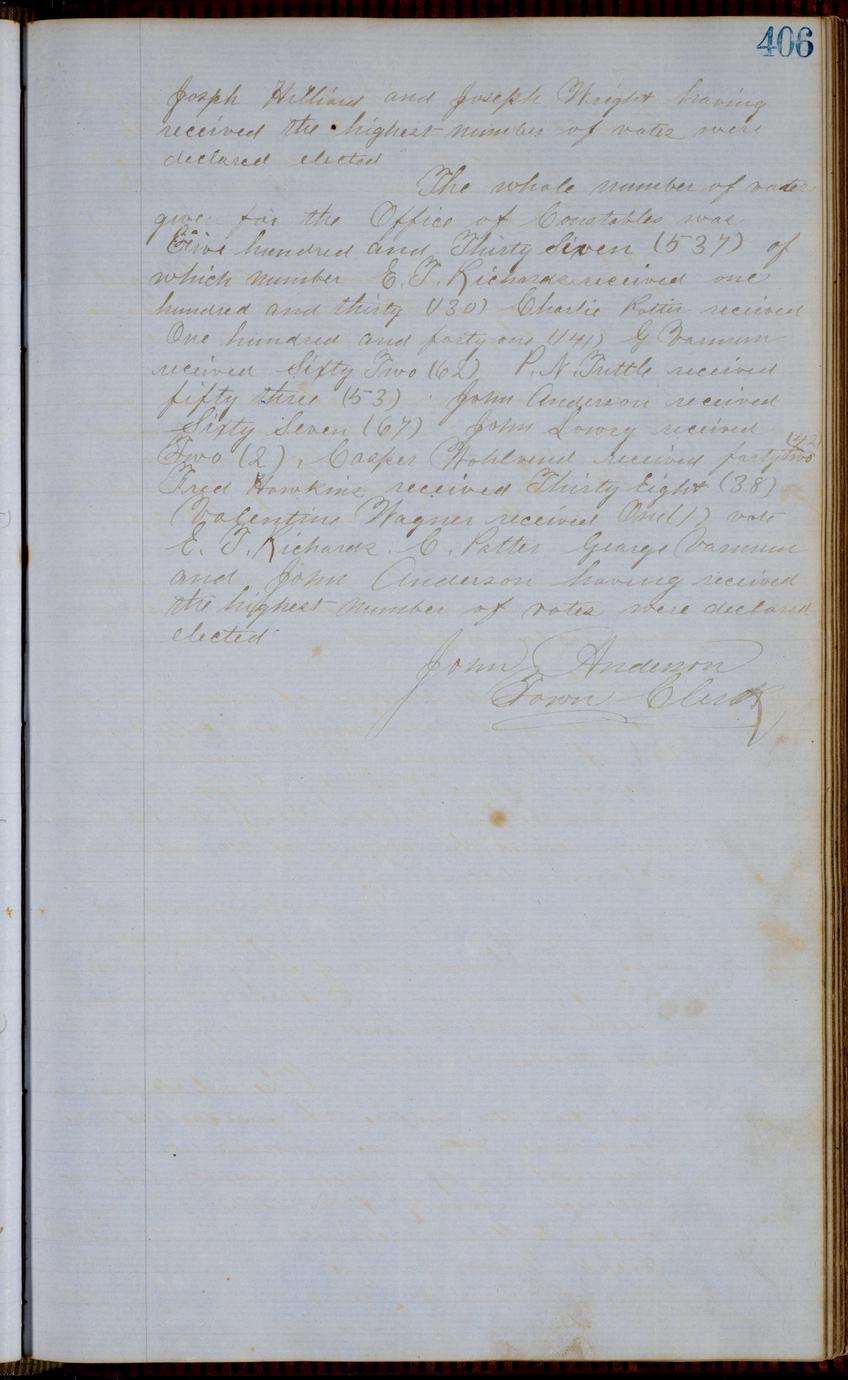 406
Josph Hilliard and Joseph Wright having
received the highest number of votes were
declared elected
The whole number of votes
given for the Office of Constables was
Five hundred and Thirty Seven (537) of
which number E. T. Richards received one
hundred and thirty (130) Charlie Potter received
One hundred and forty one (141) G Varnum
received Sixty Two (62) P. N. Tuttle received
fifty three (53) John Anderson received
Sixty Seven (67) John Lowry received
(42)
Two (2), Casper Wohlvend received forty two
Fred Hawkins received Thirty Eight (38)
Valentine Wagner received One (1) vote
E. T. Richards. C. Potter George Varnum
and John Anderson having received
the highest number of votes were declared
elected
John Anderson
Town Clerk